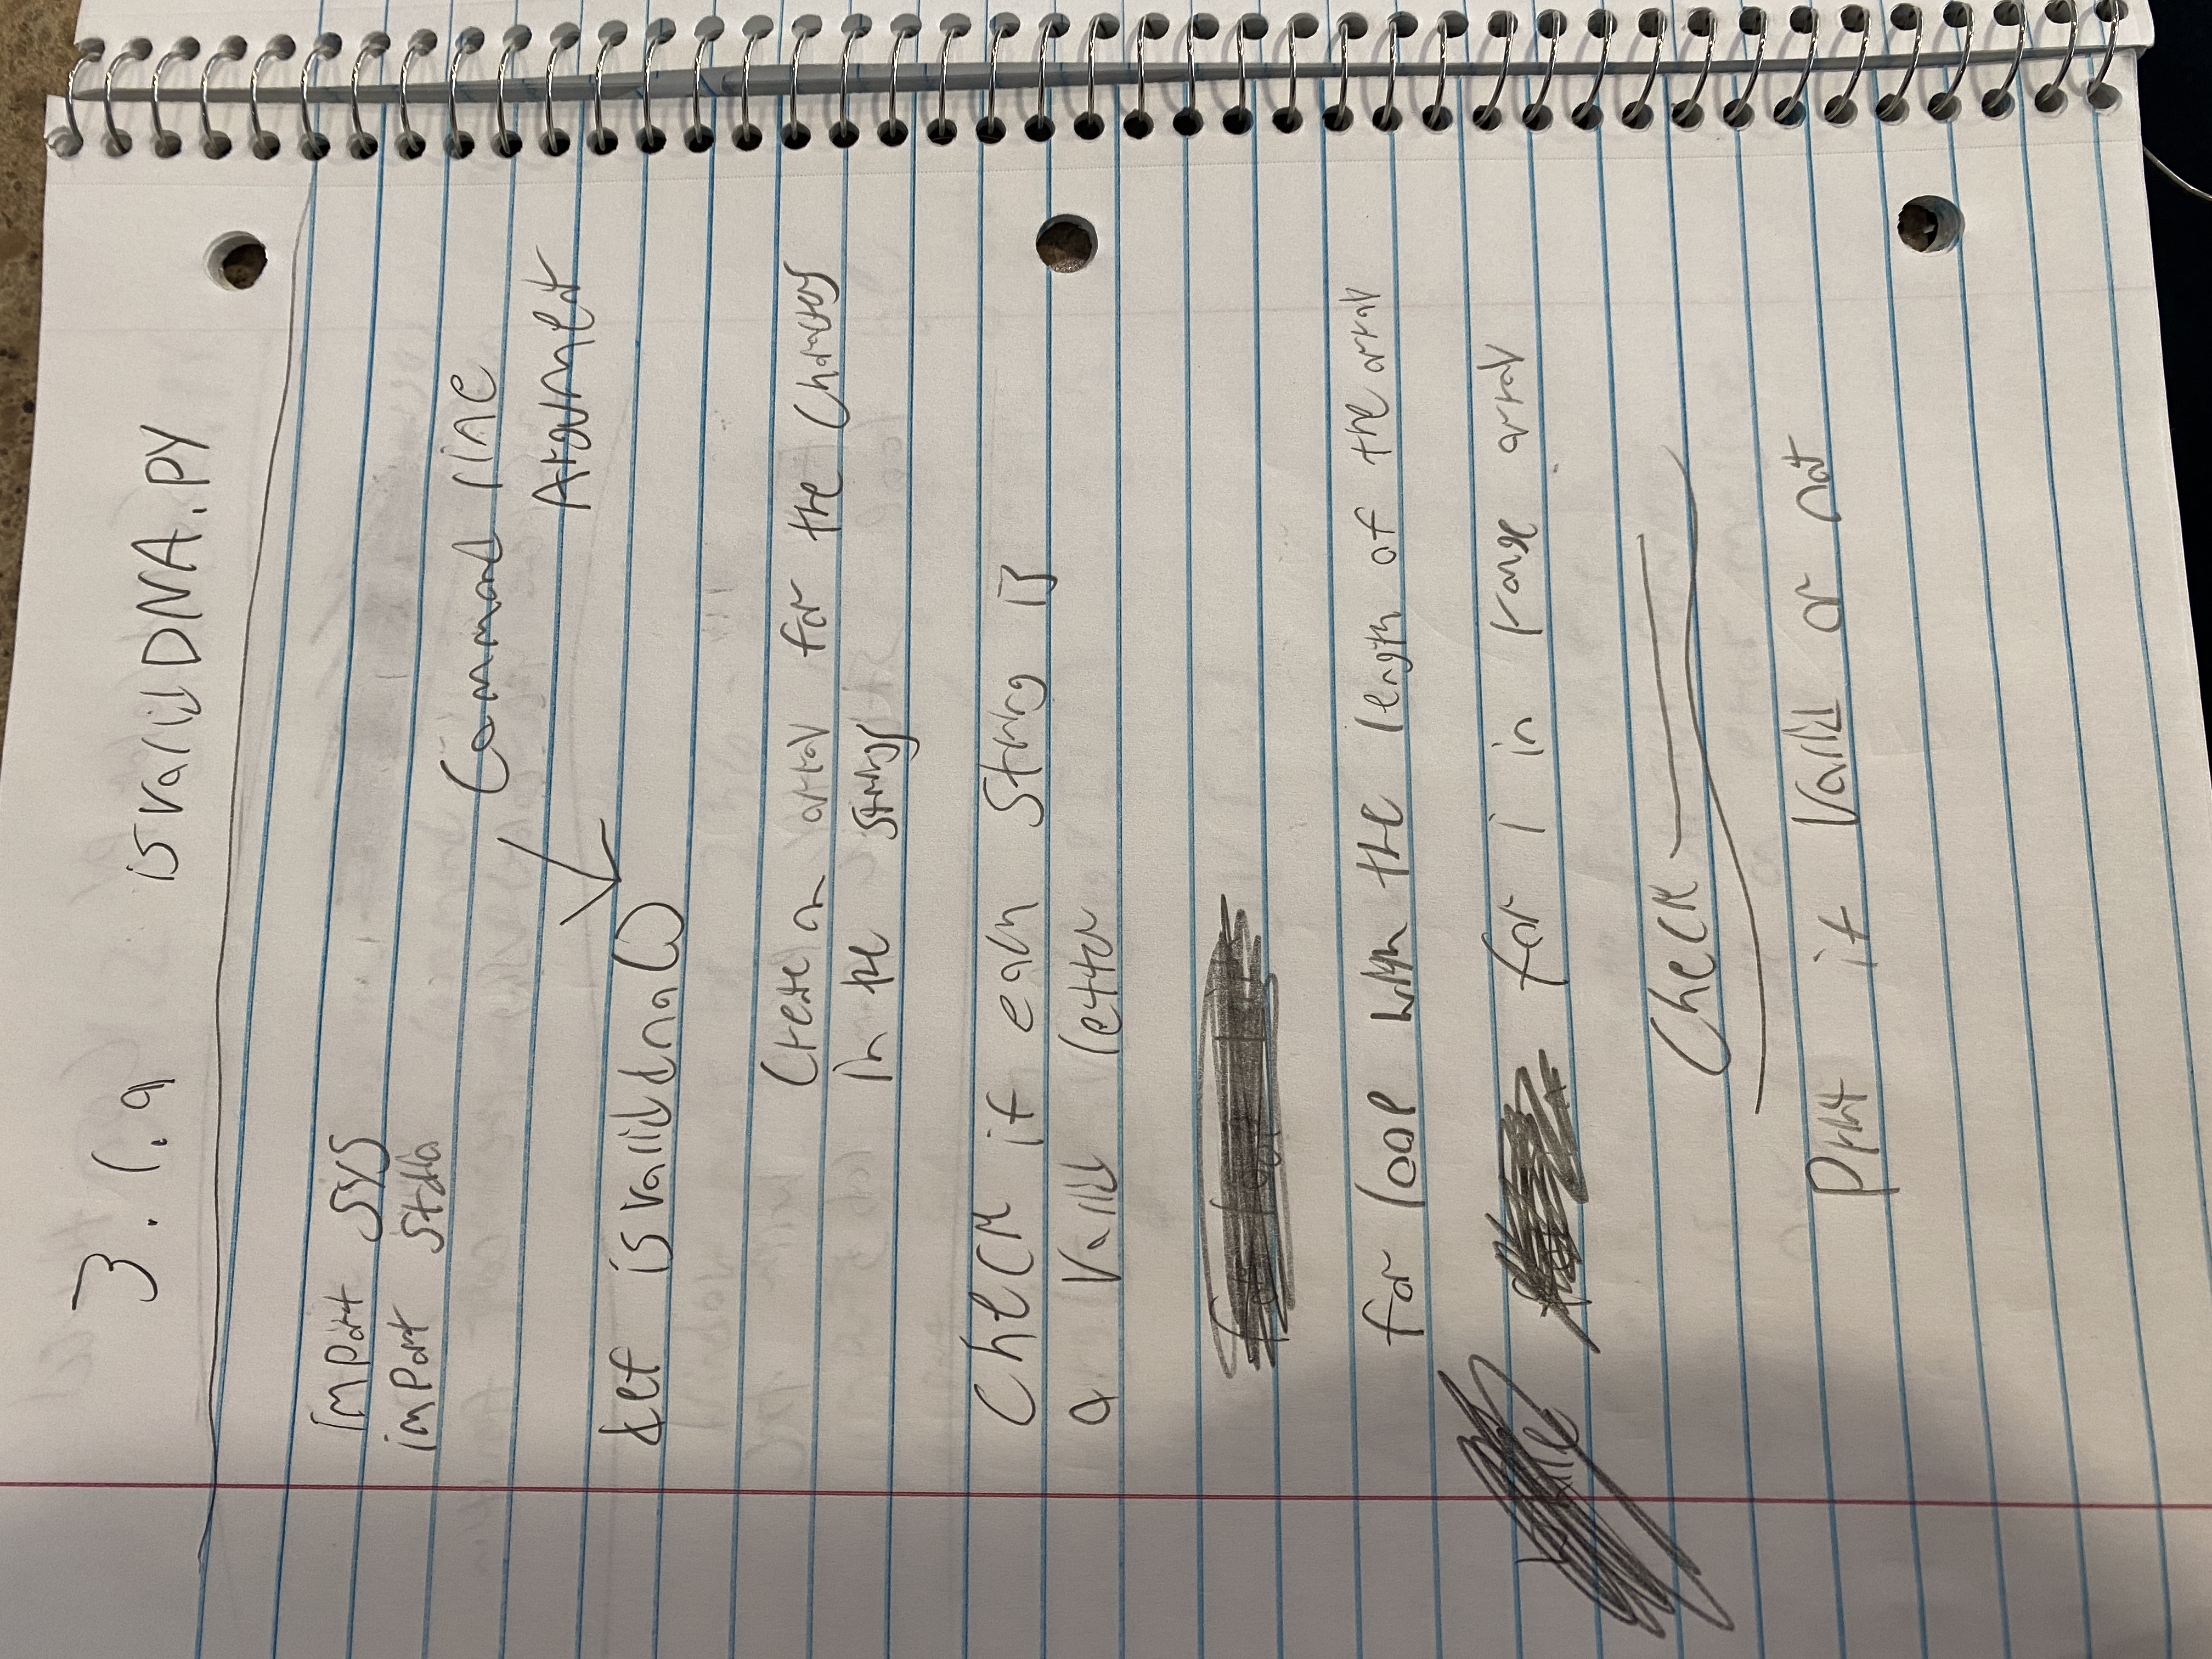 3.1.9 isvalidDNA.py
import sys
import stdio
Command line
Argument
def isvaliddna()
Create an array for the characters
in the strings
Check if each string is
a valid letter
for loop with the length of the array
for i in range array
Check
Print if valid or not